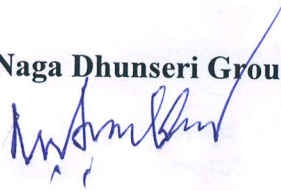 Naga Dhunseri Grou